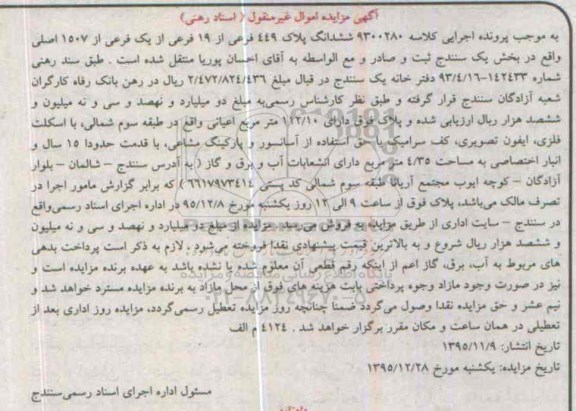 آگهی مزایده اموال غیرمنقول ( اسناد رهنی)
به موجب پرونده اجرایی کلاسه ۹۳۰۰۲۸۰ ششدانگ پلاک ۴۴۹ فرعی از ۱۹ فرعی از یک فرعی از ۱۵۰۷ اصلی
واقع در بخش یک سنندج ثبت و صادر و مع الواسطه به آقای احسان پوریا منتقل شده است . طبق سند رهنی
شماره ۱۴۲۴۳۳-۹۳/۴/۱۶ دفتر خانه یک سنندج در قبال مبلغ ۲/۴۷۲/۸۲۴/۴۳۶ ریال در رهن بانک رفاه کارگران
شعبه آزادگان سنندج قرار گرفته و طبق نظر کارشناس رسمی‌به مبلغ دو میلیارد و نهصد و سی و نه میلیون و
ششصد هزار ریال ارزیابی شده و پلاک فوق دارای ۱۱۲/۱۰ متر مربع اعیانی واقع در طبقه سوم شمالی، با اسکلت
فلزی، ایفون تصویری، کف سرامیک، حق استفاده از آسانسور و پارکینگ مشاعی، با قدمت حدودا ۱۵ سال و
انبار اختصاصی به مساحت ۴/۳۵ متر مربع دارای انشعابات آب و برق و گاز ( به آدرس سنندج – شالمان – بلوار
آزادگان – کوچه ایوب مجتمع آریانا طبقه سوم شمالی کد پستی ۶۶۱۷۹۷۳۴۱۴ ) که برابر گزارش مامور اجرا در
تصرف مالک می‌باشد، پلاک فوق از ساعت ۹ الی ۱۲ روز یکشنبه مورخ ۹۵/۱۲/۸ در اداره اجرای اسناد رسمی‌واقع
در سنندج – سایت اداری از طریق مزایده به فروش می‌رسد . مزایده از مبلغ دو میلیارد و نهصد و سی و نه میلیون
و ششصد هزار ریال شروع و به بالاترین قیمت پیشنهادی نقدا فروخته می‌شود . لازم به ذکر است پرداخت بدهی
های مربوط به آب، برق، گاز اعم از اینکه رقم قطعی آن معلوم شده یا نشده باشد به عهده برنده مزایده است و
نیز در صورت وجود مازاد وجوه پرداختی بابت هزینه های فوق از محل مازاد به برنده مزایده مسترد خواهد شد و
نیم عشر و حق مزایده نقدا وصول می‌گردد ضمنا چنانچه روز مزایده تعطیل رسمی‌گردد، مزایده روز اداری بعد از
تعطیلی در همان ساعت و مکان مقرر برگزار خواهد شد . ۴۱۲۴ م الف
تاریخ انتشار: ۱۳۹۵/۱۱/۹
تاریخ مزایده: یکشنبه مورخ ۱۳۹۵/۱۲/۲۸
مسئول اداره اجرای اسناد رسمی‌سنندج